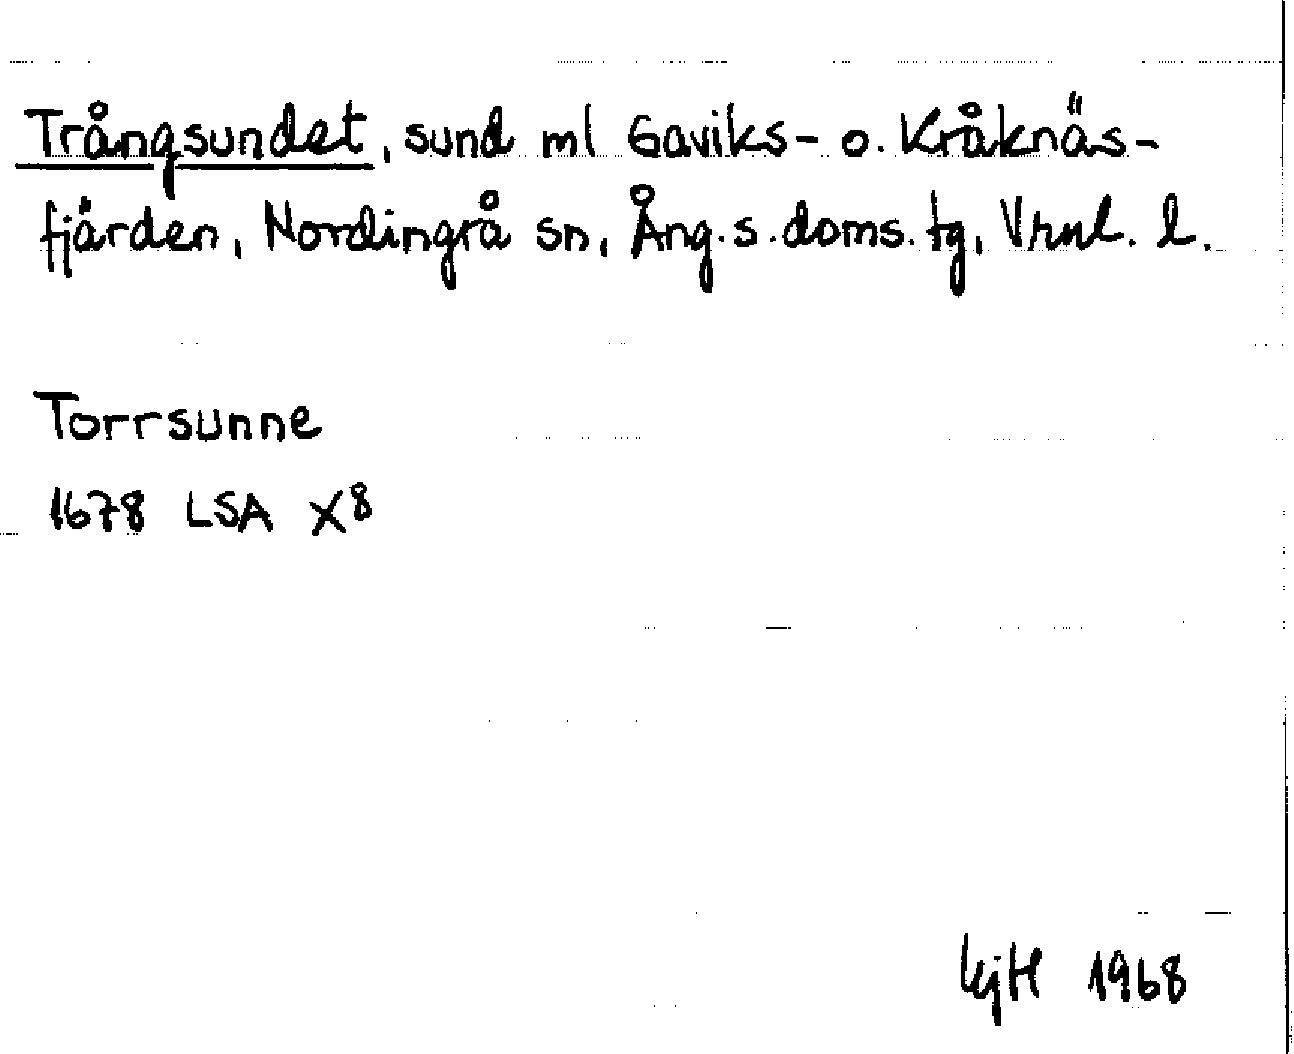 Trångsundet, sund ml Gaviks- o. Kråknäs-
fjärden, Nordingrå sn, Ång.s.doms.tg, Vrnl. l.
Torrsunne
1678 LSA X8
KjH 1968